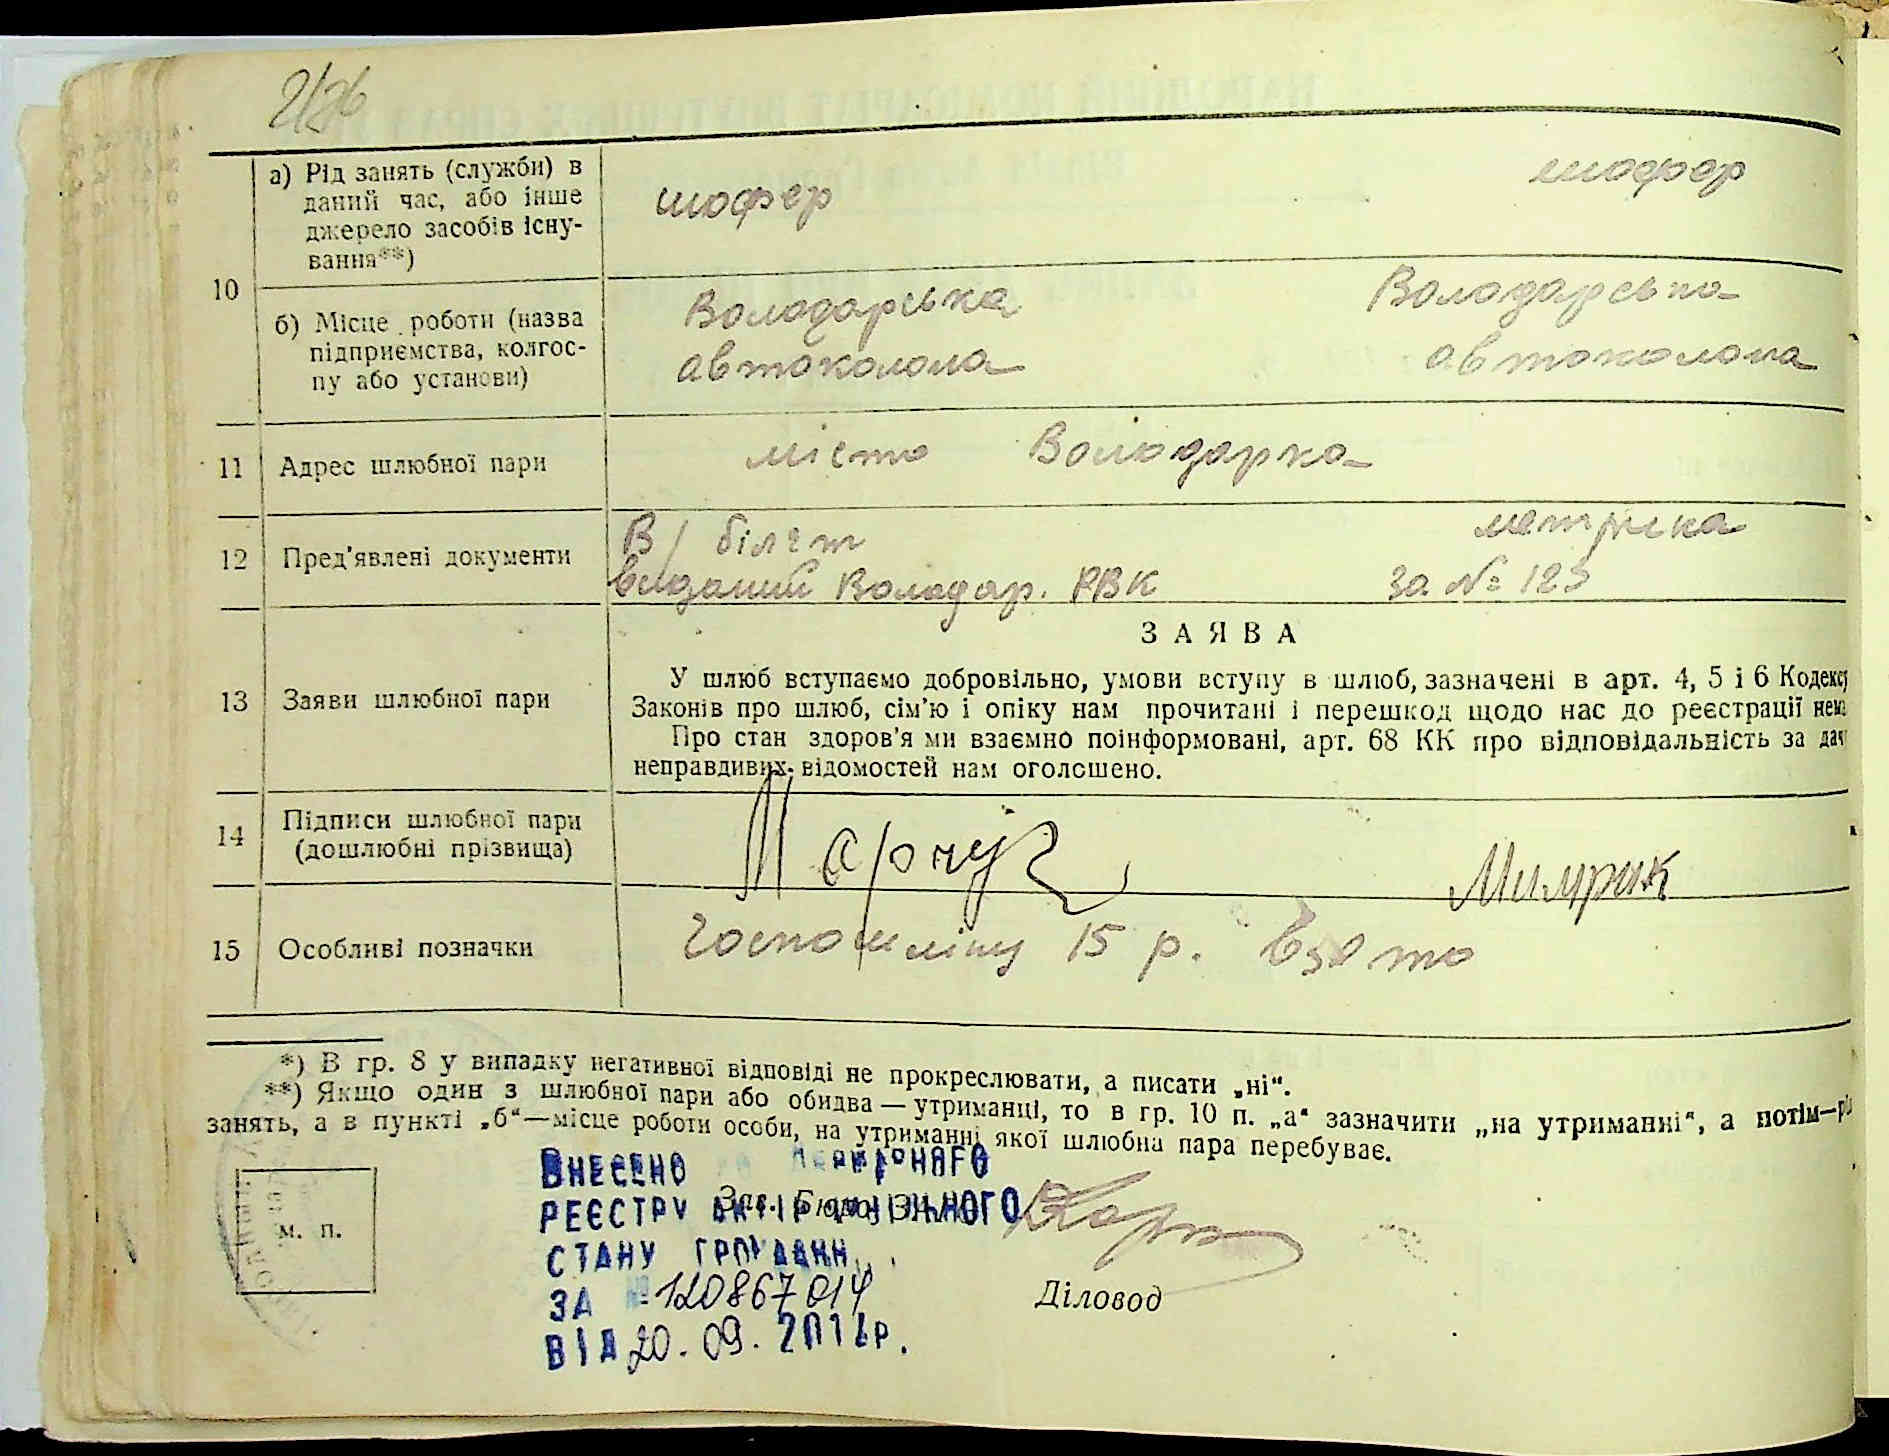 а) Рід занять (служби) в
даний час, або інше
джерело засобів існу-
вання**)
шофер
шофер
10
б) Місце роботи (назва
підприємства, колгос-
пу або установи)
Володарська
автоколона
Володарська
автоколона
11 Адрес шлюбної пари
місто Володарка
12 Пред'явлені документи
В/білет
виданий Володар. РВК
метрика
за № 123
13 Заяви шлюбної пари
ЗАЯВА
У шлюб вступаємо добровільно, умови вступу в шлюб, зазначені в арт. 4, 5 і 6 Кодексу
Законів про шлюб, сім'ю і опіку нам прочитані і перешкод щодо нас до реєстрації нема
Про стан здоров'я ми взаємно поінформовані, арт. 68 КК про відповідальність за дач
неправдивих відомостей нам оголошено.
14 Підписи шлюбної пари
(дошлюбні прізвища)
Марчук
Мимрик
15 Особливі позначки
Госпошліну 15 р. взято
*) В гр. 8 у випадку негативної відповіді не прокреслювати, а писати „ні“.
**) Якщо один з шлюбної пари або обидва — утриманці, то в гр. 10 п. „а“ зазначити „на утриманні“, а потім—рі
занять, а в пункті „б“—місце роботи особи, на утриманні якої шлюбна пара перебуває.
м. п.
Зав. Бюро ЗАГС
ВНЕСЕНО ДО ДЕРЖАВНОГО
РЕЄСТРУ АКТІВ ЦИВІЛЬНОГО
СТАНУ ГРОМАДЯН
ЗА № 120867014
ВІД 20.09.201 р.
Діловод